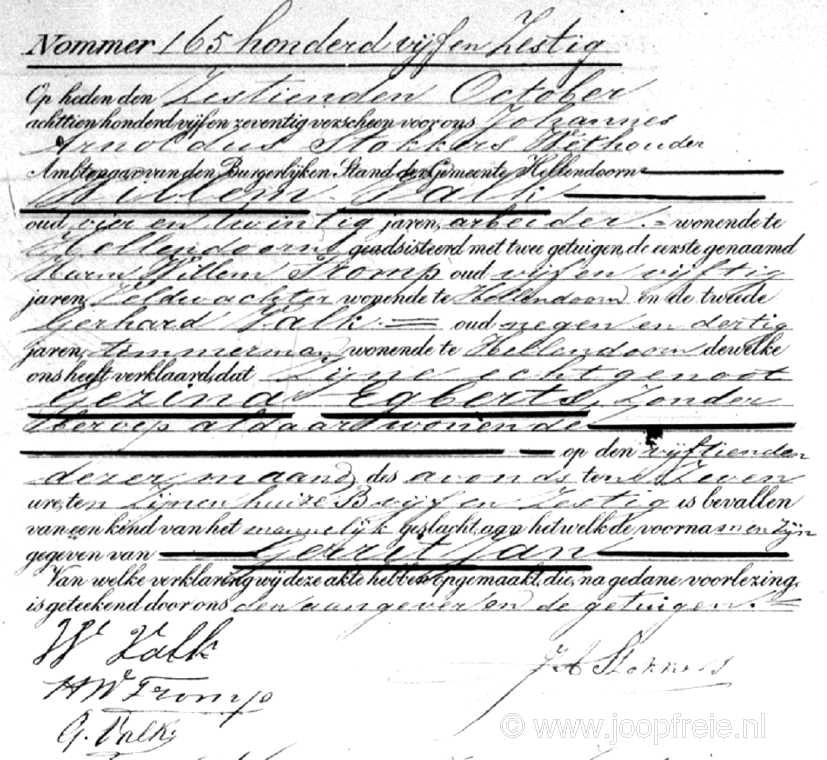 Nommer 165 honderd vijf en Zestig
Op heden den Zestienden October
achttien honderd vijf en zeventig verscheen voor ons Johannes
Arnoldus Stokkers Wethouder
Ambtenaar van den Burgerlijken Stand der Gemeente Hellendoorn
Willem Valk
oud vier en twintig jaren, arbeider wonende te
Hellendoorn geadsisteerd met twee getuigen, de eerste genaamd
Harm Willem Tromp oud vijf en vijftig
jaren, Veldwachter wonende te Hellendoorn en de tweede
Gerhard Valk oud negen en dertig
jaren, timmerman wonende te Hellendoorn dewelke
ons heeft verklaard, dat Zijne echtgenoot
Gezina Egberts, Zonder
beroep aldaar wonende
op den vijftienden
dezer maand, des avonds ten Zeven
ure, ten Zijnen huize B vijf en Zestig is bevallen
van een kind van het mannelijk geslacht, aan hetwelk de voornamen Zijn
gegeven van Gerrit Jan
Van welke verklaring wij deze akte hebben opgemaakt, die, na gedane voorlezing,
is geteekend door ons den aangever en de getuigen.
W Valk
J A Stokkers
H W Tromp
G. Valk
© www.joopfreie.nl